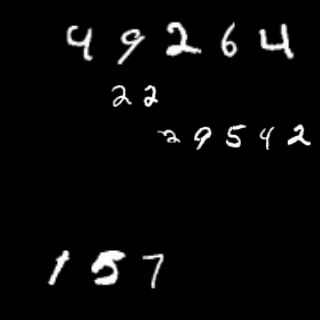 49264
22
29542
157